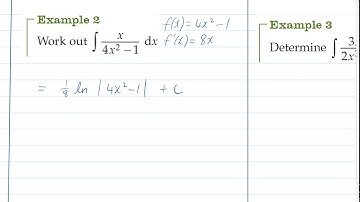 Example 2
Work out ∫ x/(4x² − 1) dx
f(x) = 4x² − 1
f'(x) = 8x
= 1/8 ln |4x² − 1| + C
Example 3
Determine ∫ 3/2x